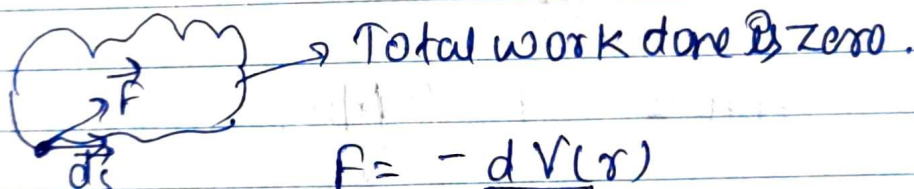 → Total work done is zero.
F⃗
F = - d V(r)